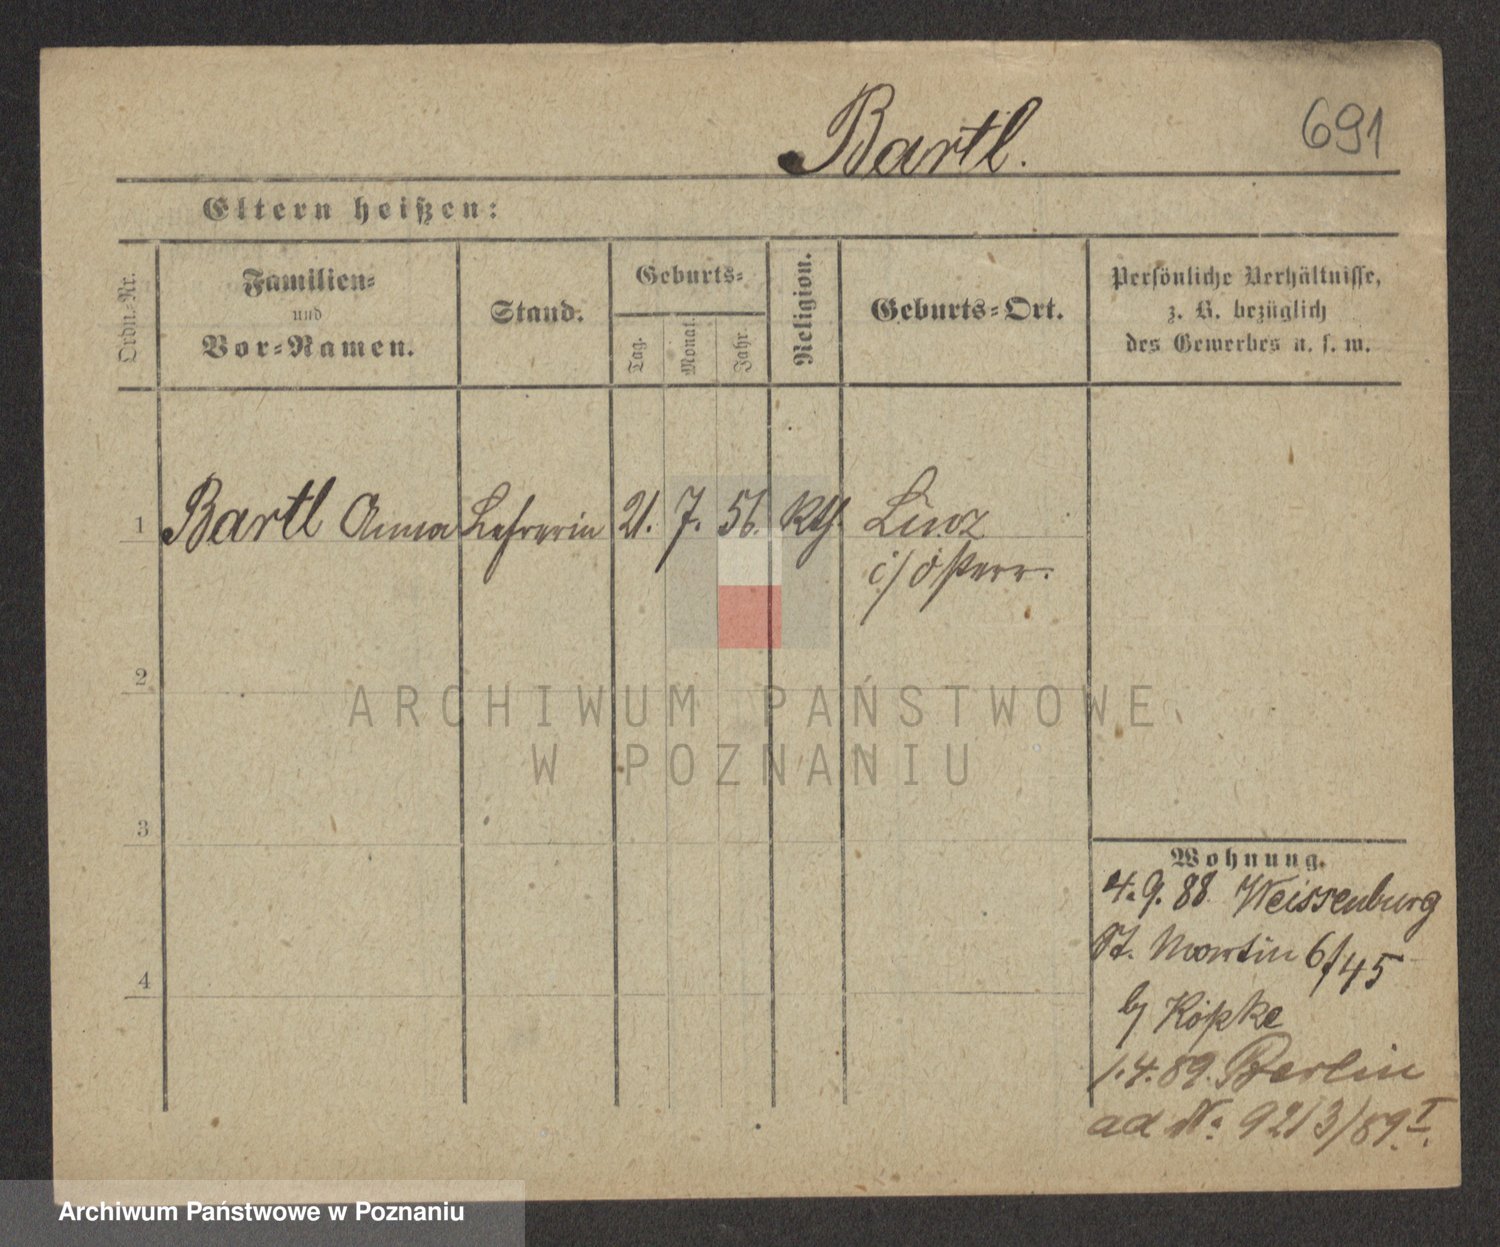 Bartl.
691
Eltern heißen:
Ordn.-Nr.
Familien-
und
Vor-Namen.
Stand.
Geburts-
Tag.
Monat.
Jahr.
Religion.
Geburts-Ort.
Persönliche Verhältnisse,
z. B. bezüglich
des Gewerbes u. s. w.
1 Bartl Anna Lehrerin 21. 7. 56. kth. Linz
i/ österr.
2
3
4
Wohnung.
4. 9. 88. Weissenburg
St. Martin 6/45
by Köpke
1. 4. 89. Berlin
ad No. 9213/89 I.
ARCHIWUM PAŃSTWOWE
W POZNANIU
Archiwum Państwowe w Poznaniu